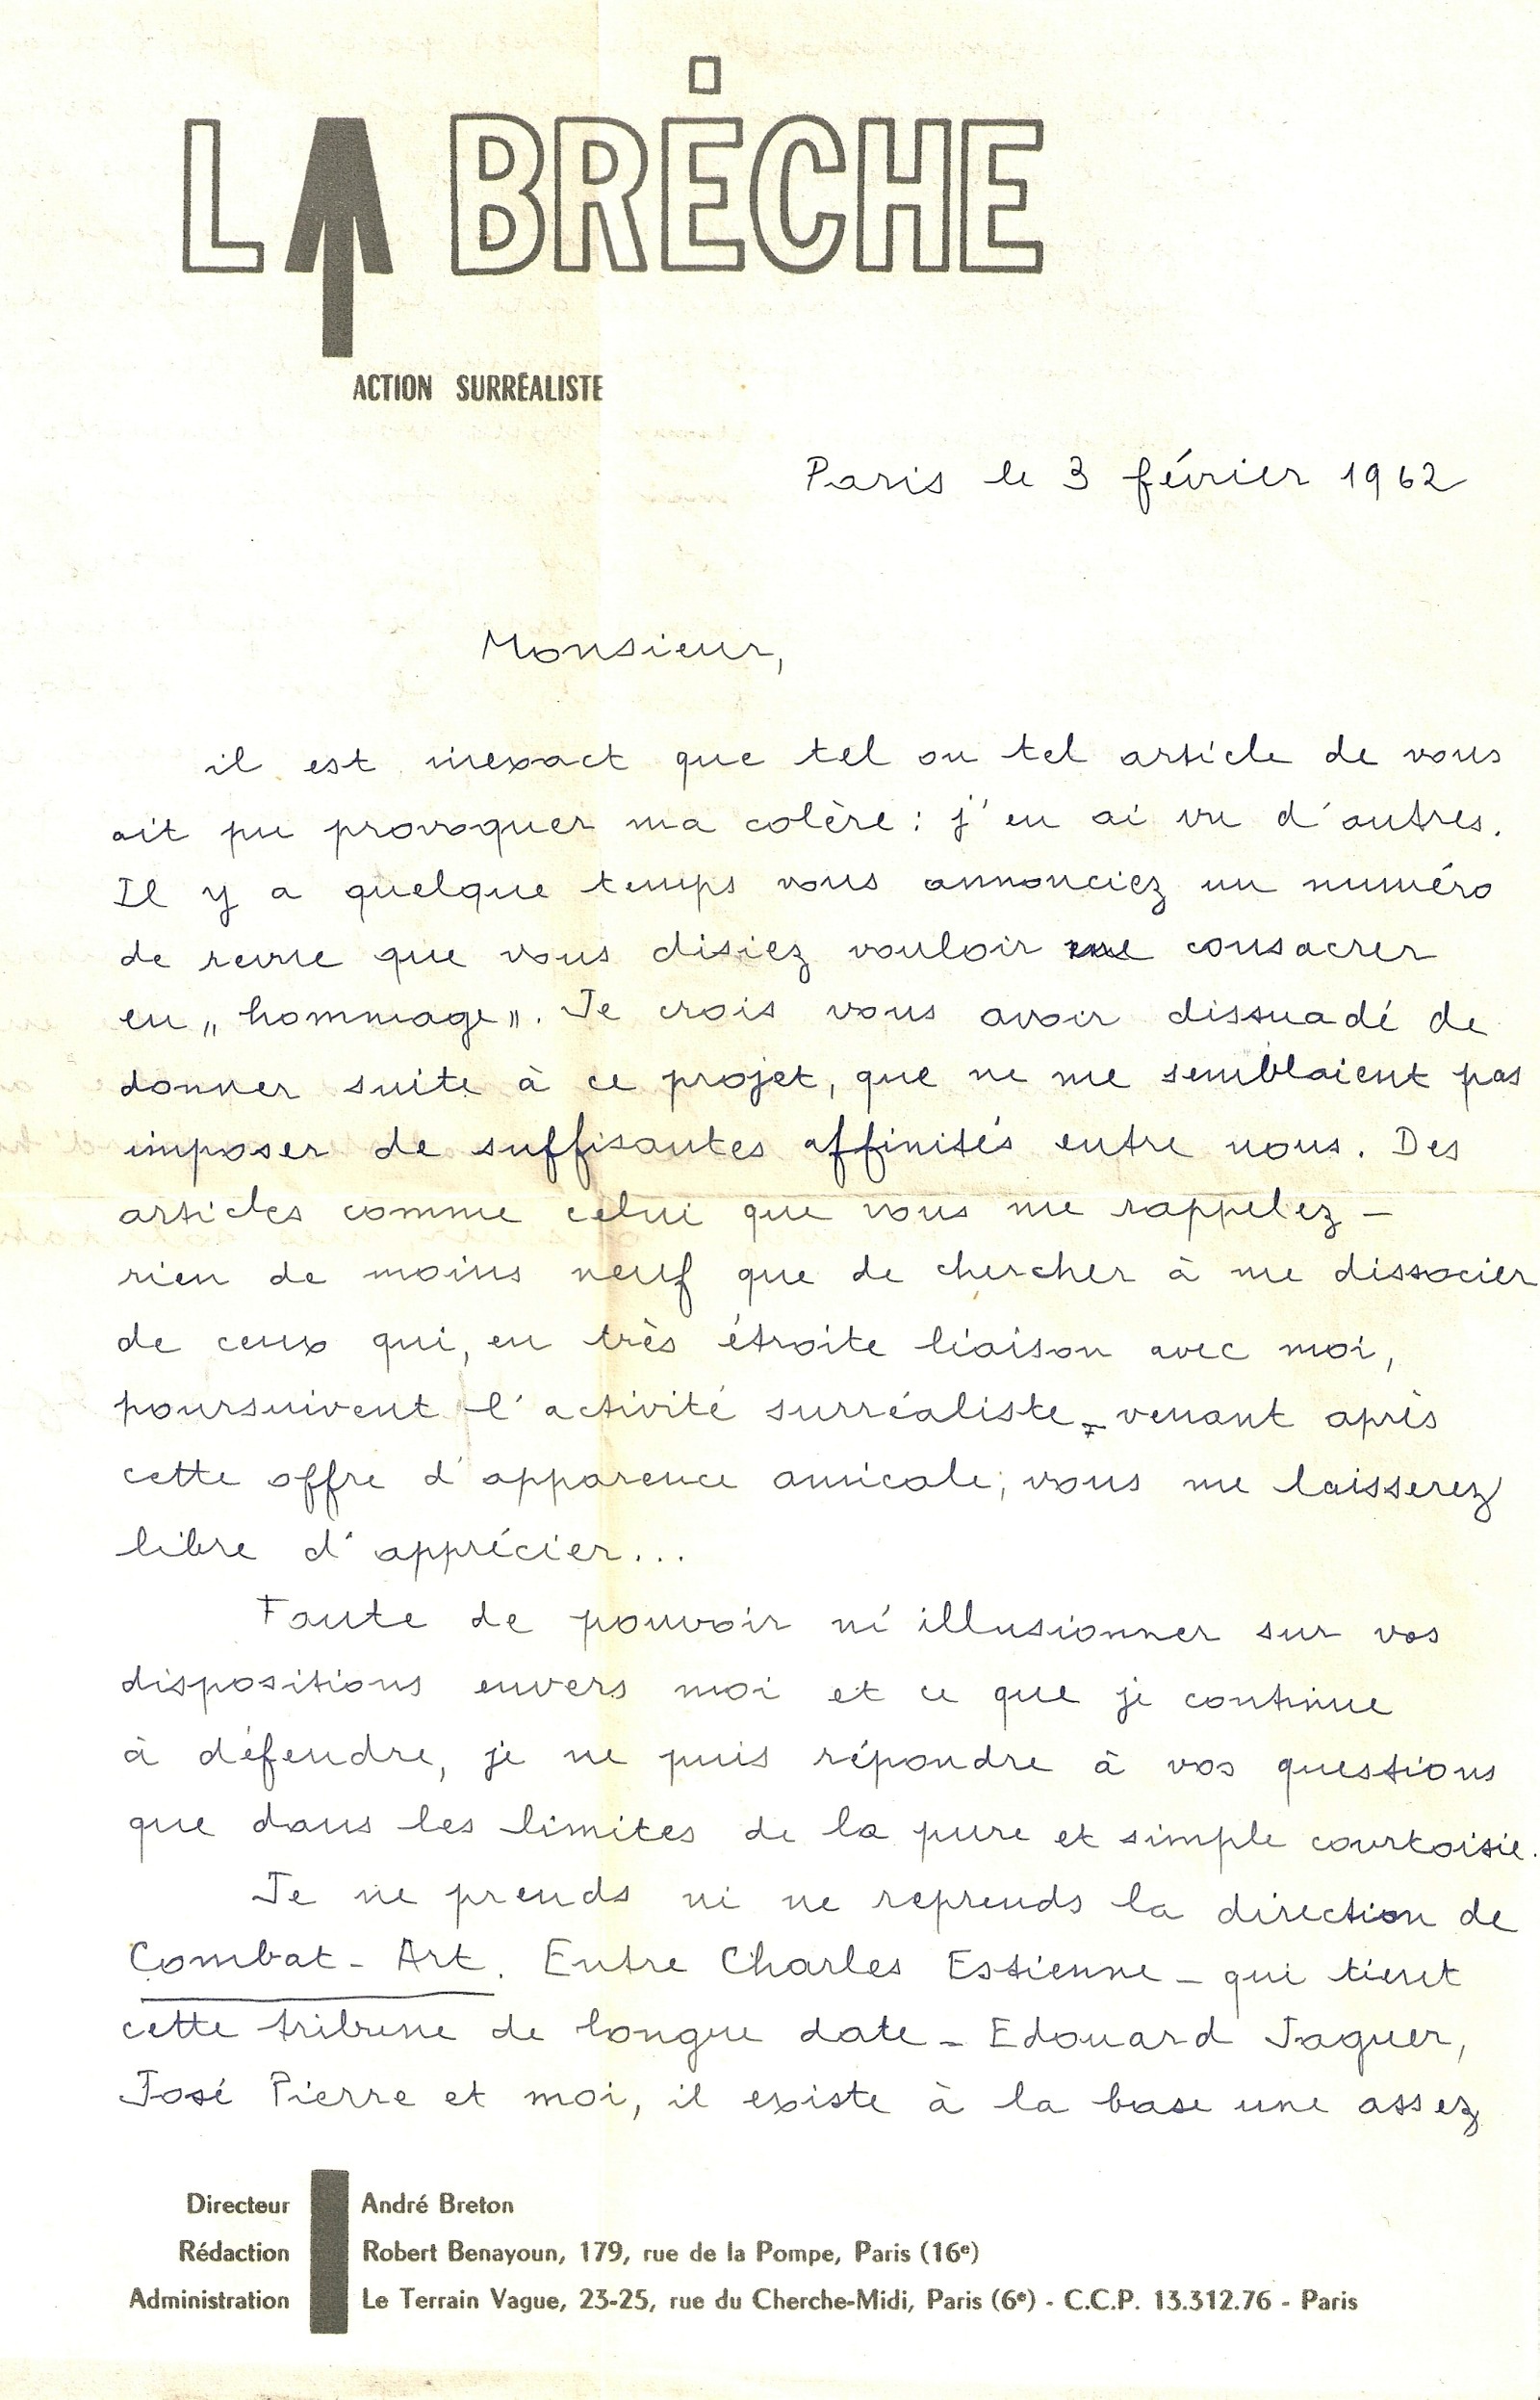 LA BRÈCHE
ACTION SURRÉALISTE
Paris le 3 février 1962
Monsieur,
il est inexact que tel ou tel article de vous
ait pu provoquer ma colère : j'en ai vu d'autres.
Il y a quelque temps vous annonciez un numéro
de revue que vous disiez vouloir me consacrer
en „hommage". Je crois vous avoir dissuadé de
donner suite à ce projet, que ne me semblaient pas
imposer de suffisantes affinités entre nous. Des
articles comme celui que vous me rappelez –
rien de moins neuf que de chercher à me dissocier
de ceux qui, en très étroite liaison avec moi,
poursuivent l'activité surréaliste – venant après
cette offre d'apparence amicale, vous me laisserez
libre d'apprécier...
Faute de pouvoir m'illusionner sur vos
dispositions envers moi et ce que je continue
à défendre, je ne puis répondre à vos questions
que dans les limites de la pure et simple courtoisie.
Je ne prends ni ne reprends la direction de
Combat-Art. Entre Charles Estienne – qui tient
cette tribune de longue date – Edouard Jaguer,
José Pierre et moi, il existe à la base une assez
Directeur André Breton
Rédaction Robert Benayoun, 179, rue de la Pompe, Paris (16e)
Administration Le Terrain Vague, 23-25, rue du Cherche-Midi, Paris (6e) - C.C.P. 13.312.76 - Paris